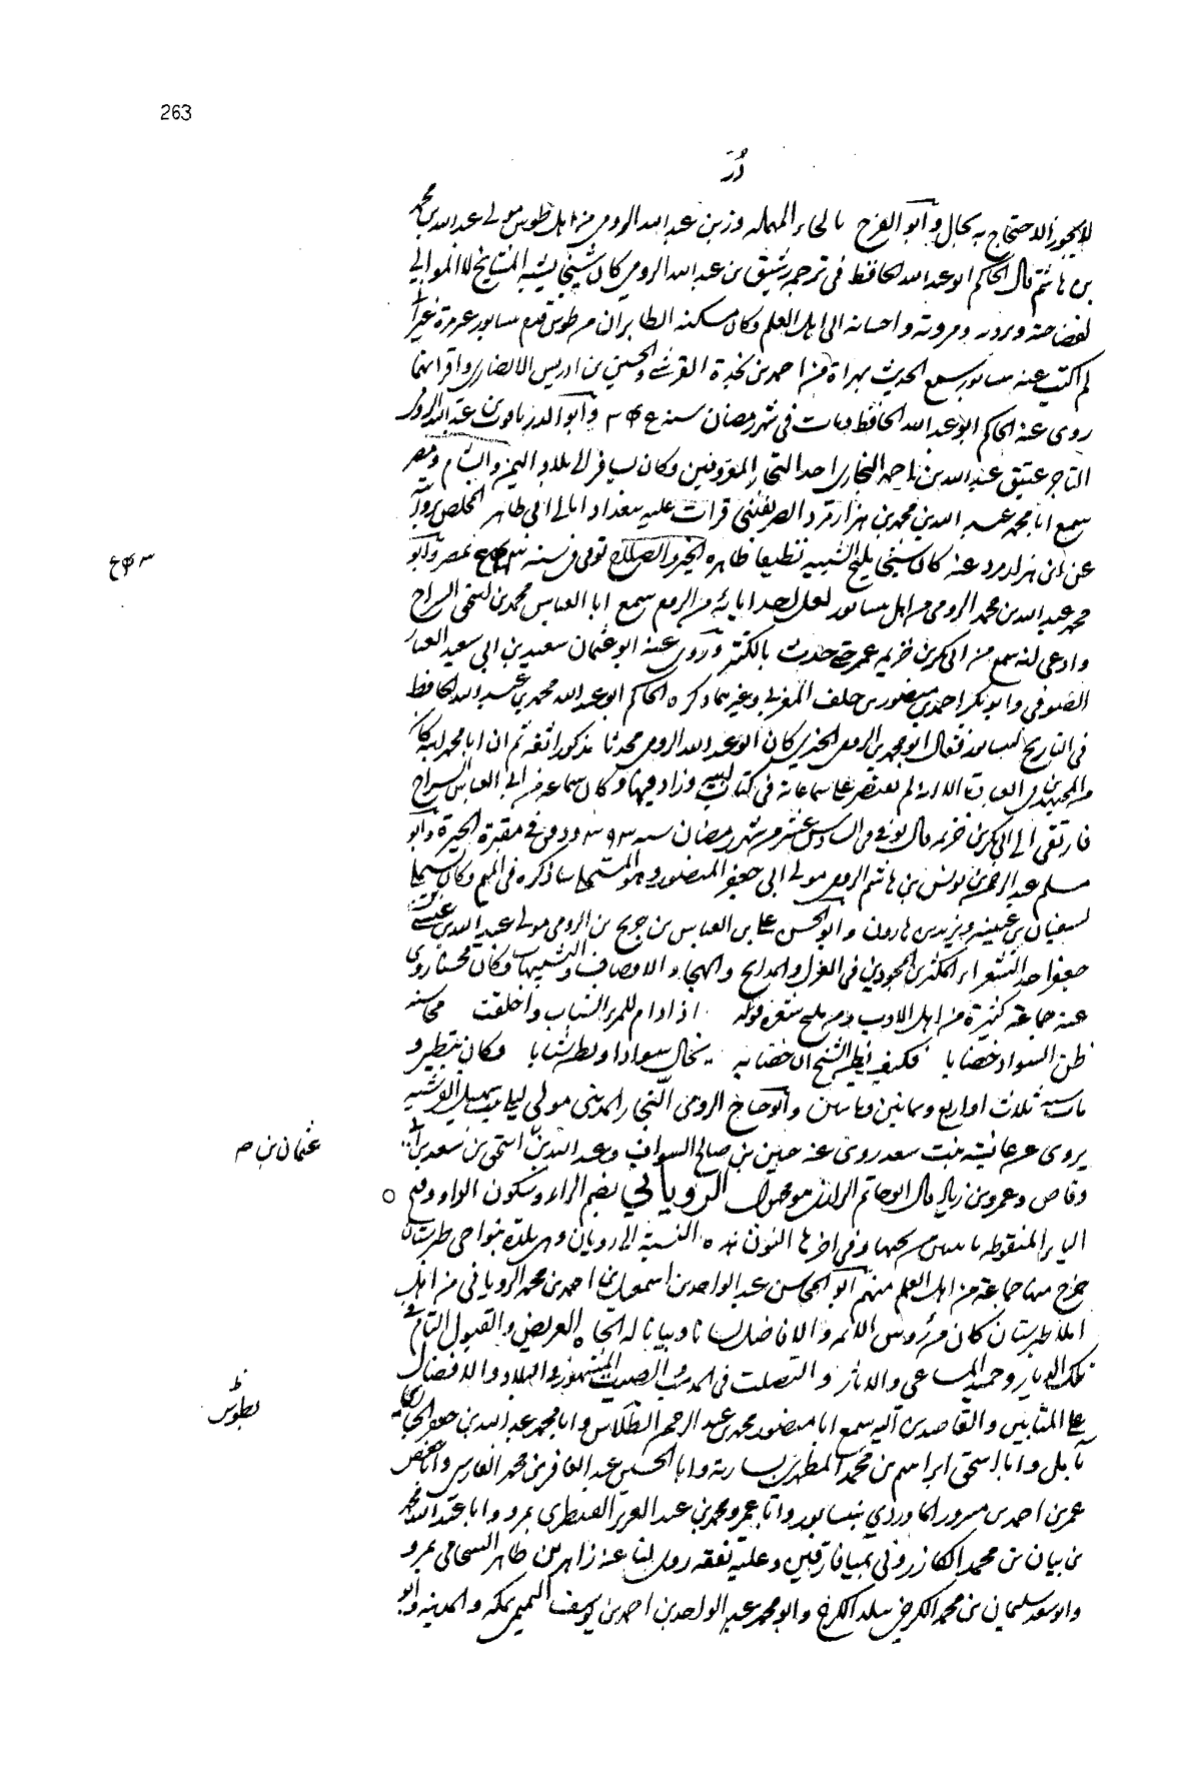 263
رُ
لا يجوز الاحتجاج به بحال وابو الفرح بالحاء المهملة وزير بن عبد الله الرومي من اهل طوس مولى عبد الله بن محمد
بن هاشم قال الحاكم ابو عبد الله الحافظ في ترجمة رشيق بن عبد الله الرومي كان شيخا يشبه المشايخ لا الموالي
لفصاحته ومروته واحسانه الى اهل العلم وكان مسكنه الطابران من طوس قدم نيسابور غير مرة غير اني
لم اكتب عنه بنيسابور سمع الحديث بهراة من احمد بن نجدة القرشي والحسين بن ادريس الانصاري واقرانهما
روى عنه الحاكم ابو عبد الله الحافظ ومات في شهر رمضان سنة وابو الدر ياقوت بن عبد الله الرومي
التاجر عتيق عبد الله بن احمد البخاري احد التجار المعروفين وكان يسافر الى بلاد اليمن والشام ومصر
سمع ابا محمد عبد الله بن محمد بن هزارمرد الصريفيني قرات عليه ببغداد امالي ابي طاهر المخلص بروايته
عن ابن هزارمرد عنه كان شيخا مليح الشيبة نظيفا ظاهره الخير والصلاح توفي في سنة بمصر وابو
محمد عبد الله بن محمد الرومي من اهل نيسابور لعل احد ابائه من الروم سمع ابا العباس محمد بن اسحق السراج
وادعى انه سمع من ابي بكر بن خزيمة عمر حتى حدث بالكثير وروى عنه ابو عثمان سعيد بن ابي سعيد العيار
الصوفي وابو بكر احمد بن منصور بن خلف المغربي وغيرهما وذكره الحاكم ابو عبد الله محمد بن عبد الله الحافظ
في التاريخ لنيسابور فقال ابو محمد بن الرومي الحيري كان ابو عبد الله الرومي محدثا مذكورا ثقة ثم ان ابا محمد ابنه كان
من المجتهدين في العبادة الا انه لم يقتصر على سماعاته في كتاب ابيه وزاد فيها وكان سماعه من ابي العباس السراج
فارتقى الى ابي بكر بن خزيمة قال توفي في السادس عشر من شهر رمضان سنة ٣٩٣ ودفن في مقبرة الحيرة وابو
مسلم عبد الرحمن بن يونس بن هاشم الرومي مولى ابي جعفر المنصور وهو المستملي سنذكره في الميم وكان يستملي
لسفيان بن عيينة ويزيد بن هارون وابو الحسن علي بن العباس بن جريج بن الرومي مولى عبيد الله بن عيسى
بن جعفر احد الشعراء المكثرين المجودين في الغزل والمديح والهجاء والاوصاف والتشبيهات وكان محسنا روى
عنه جماعة كثيرة من اهل الادب ومن مليح شعره قوله اذا دام للمرء الشباب واخلقت محاسنه
ظن السواد خضابا فكيف يظن الشيخ ان خضابه يخال سوادا او يظن شبابا وكان يتطير و
مات سنة ثلاث او اربع وثمانين ومائتين وابو حجاج الرومي النجار المديني مولى ليلى بنت سهيل القرشية
يروي عن عائشة بنت سعد روى عنه حسين بن صالح السواف وعبد الله بن اسحق بن سعد بن ابي
وقاص وعمرو بن زياد قال ابو حاتم الرازي هو مجهول الروياني بضم الراء وسكون الواو وفتح
الياء المنقوطة باثنتين من تحتها وفي اخرها النون هذه النسبة الى رويان وهي بلدة بنواحي طبرستان
خرج منها جماعة من اهل العلم منهم ابو المحاسن عبد الواحد بن اسمعيل بن احمد بن محمد الروياني من اهل
امل طبرستان كان من رؤس الائمة والافاضل لسانا وبيانا له الجاه العريض والقبول التام في
تلك الديار وحميد المساعي والاثار والتصلب في المذهب والصيت المشهور في البلاد والافضال
على المنتابين والقاصدين اليه سمع ابا منصور محمد بن عبد الرحمن الطلاس وابا محمد عبد الله بن جعفر الخبازي
بآمل وابا اسحق ابراهيم بن محمد المطهري بسارية وابا الحسين عبد الغافر بن محمد الفارسي وابا حفص
عمر بن احمد بن مسرور الماوردي بنيسابور وابا عمرو محمد بن عبد العزيز القنطري بمرو وابا عبد الله محمد
بن بيان بن محمد الكازروني بميافارقين وعليه تفقه روى لنا عنه زاهر بن طاهر الشحامي بمرو
وابو سعد سليمان بن محمد الكرخي ببلد الكرخ وابو محمد عبد الواحد بن احمد بن يوسف التميمي بمكة والمدينة وابو
عثمان بن ص
ظ
بطوس